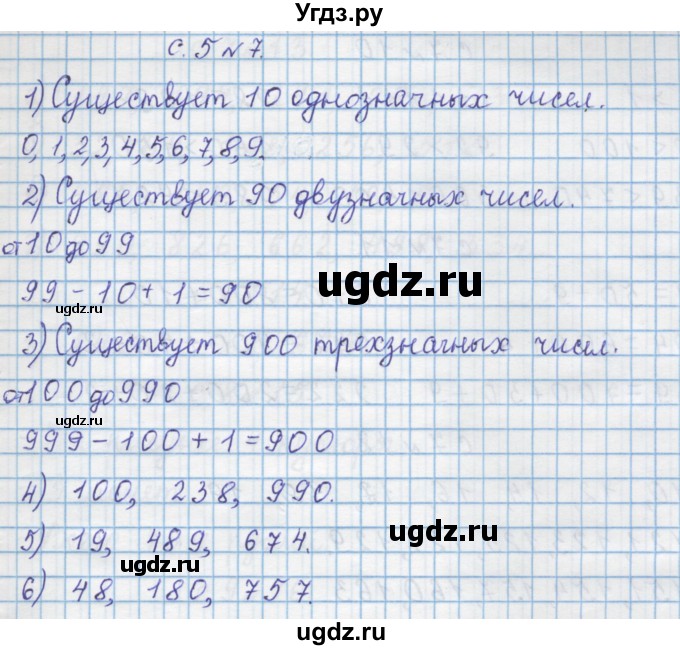 Угдз.ру
с. 5 № 7.
1) Существует 10 однозначных чисел.
0, 1, 2, 3, 4, 5, 6, 7, 8, 9.
2) Существует 90 двузначных чисел.
от 10 до 99
ugdz.ru
99 - 10 + 1 = 90
ugdz.ru
3) Существует 900 трехзначных чисел.
от 100 до 990
ugdz.ru
999 - 100 + 1 = 900
4) 100, 238, 990.
ugdz.ru
5) 19, 489, 674.
ugdz.ru
6) 48, 180, 757.
ugdz.ru